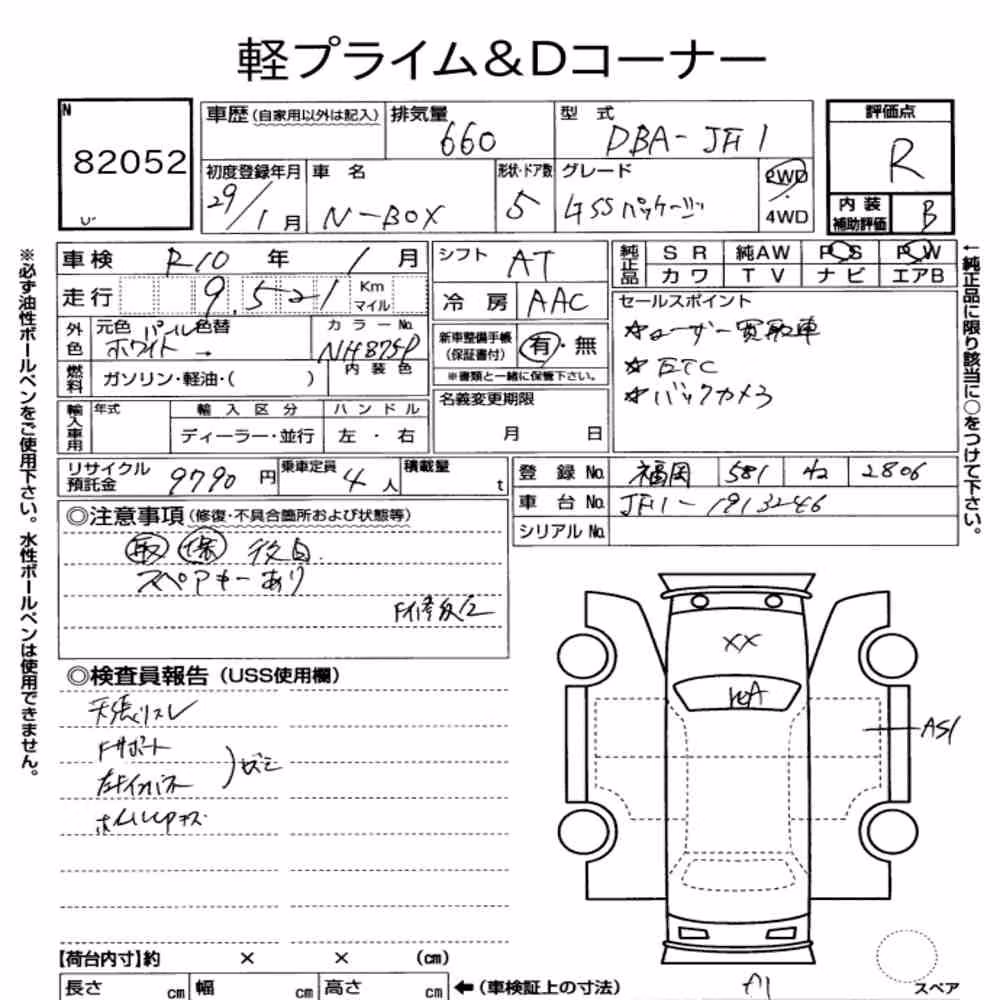 軽プライム&Dコーナー
N
82052
車歴(自家用以外は記入)
排気量
660
型式
DBA-JF1
評価点
R
初度登録年月
29/1月
車名
N-BOX
形状・ドア数
5
グレード
G SS パッケージ
2WD
・
4WD
内装
補助評価
B
車検 R10年 1月
走行 9,521 Km
マイル
シフト AT
冷房 AAC
純正品
SR 純AW PS PW
カワ TV ナビ エアB
セールスポイント
☆ユーザー買取車
☆ETC
☆バックカメラ
外色
元色 パール 色替
ホワイト →
カラーNo.
NH875P
燃料
ガソリン・軽油・( )
内装色
新車整備手帳
(保証書付)
有・無
※書類と一緒に保管下さい。
輸入車用
年式
輸入区分
ハンドル
ディーラー・並行
左・右
名義変更期限
月 日
リサイクル
預託金
9790円
乗車定員
4人
積載量
t
登録No. 福岡 581 ね 2806
車台No. JF1-1913246
シリアルNo.
◎注意事項(修復・不具合箇所および状態等)
取 保 後日.
スペアキーあり
F修正
◎検査員報告(USS使用欄)
天張りスレ
Fサポート
左Fインパネ
XX
A51
A1
【荷台内寸】約 × × (cm)
長さ cm 幅 cm 高さ cm
←(車検証上の寸法)
スペア
※必ず油性ボールペンをご使用下さい。水性ボールペンは使用できません。
←純正品に限り該当に○をつけて下さい。